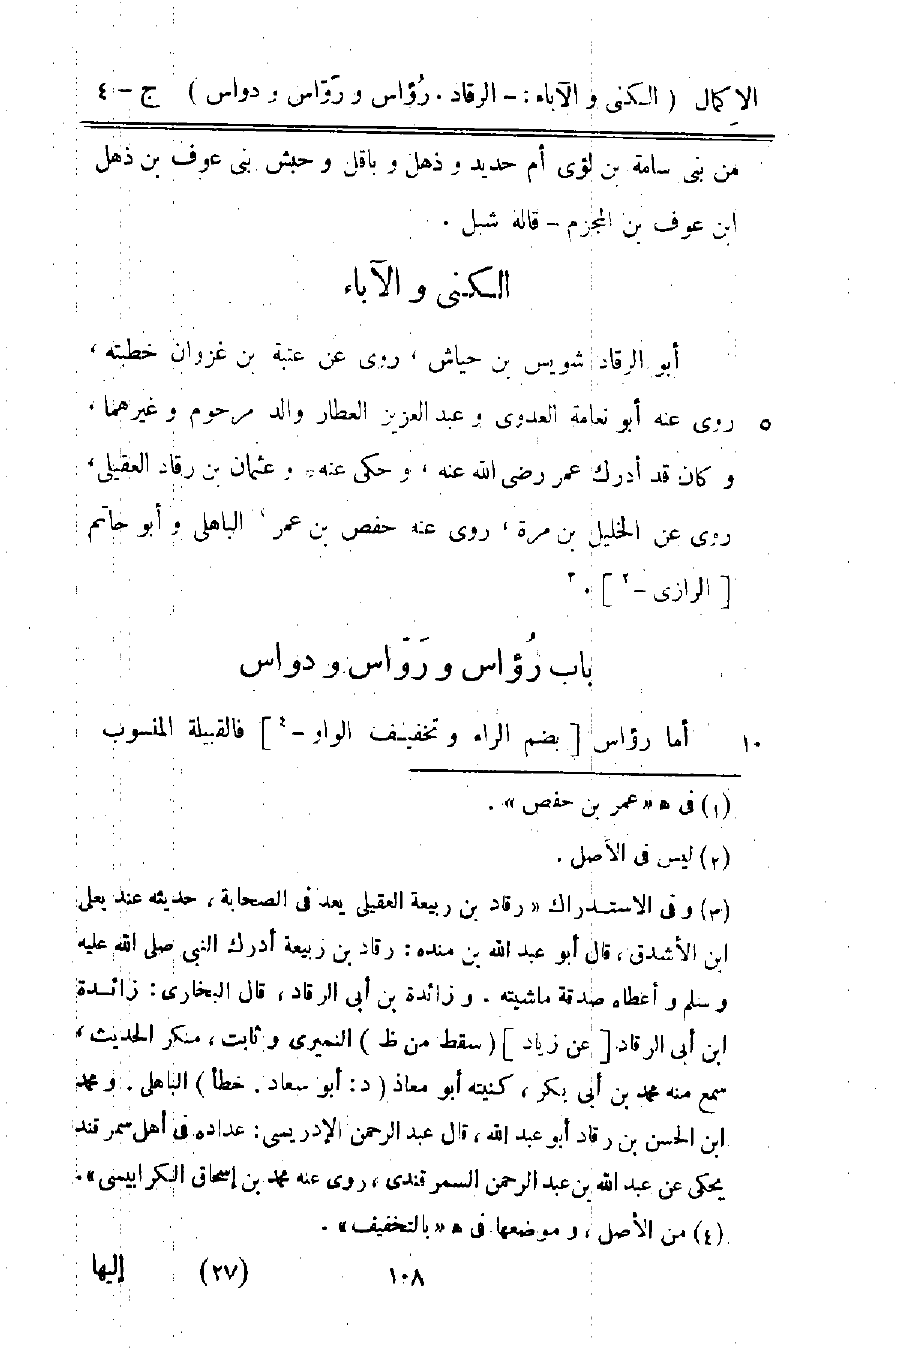 الإكمال ( الكنى و الآباء : – الرقاد . رُؤاس و رَوّاس و دواس ) ج – ٤
من بنى سامة بن لؤى أم حديد و ذهل و باقل و حبش بنى عوف بن ذهل
ابن عوف بن المجزم – قاله شبل .
الكنى و الآباء
أبو الرقاد شويس بن حياش ، روى عن عتبة بن غزوان خطبته ،
٥ روى عنه أبو نعامة العدوى و عبد العزيز العطار والد مرحوم و غيرهما .
و كان قد أدرك عمر رضى الله عنه ، و حكى عنه . و عثمان بن رقاد العقيلى ،
روى عن الخليل بن مرة ، روى عنه حفص بن عمر ١ الباهلى و أبو حاتم
[ الرازى – ٢ ] . ٣
باب رُؤاس و رَوّاس و دواس
١٠ أما رؤاس [ بضم الراء و تخفيف الواو – ٤ ] فالقبيلة المنسوب
(١) فى ه « عمر بن حفص » .
(٢) ليس فى الأصل .
(٣) و فى الاستدراك « رقاد بن ربيعة العقيلى يعد فى الصحابة ، حديثه عند يعلى
ابن الأشدق ، قال أبو عبد الله بن منده : رقاد بن ربيعة أدرك النبى صلى الله عليه
و سلم و أعطاه صدقة ماشيته . و زائدة بن أبى الرقاد ، قال البخارى : زائدة
ابن أبى الرقاد [ عن زياد ] ( سقط من ظ ) النميرى و ثابت ، منكر الحديث ،
سمع منه محمد بن أبى بكر ، كنيته أبو معاذ ( د : أبو سعاد . خطأ ) الباهلى . و محمد
ابن الحسن بن رقاد أبو عبد الله ، قال عبد الرحمن الإدريسى : عداده فى أهل سمر قند
يحكى عن عبد الله بن عبد الرحمن السمر قندى ، روى عنه محمد بن إسحاق الكرابيسى » .
(٤) من الأصل ، و موضعها فى ه « بالتخفيف » .
١٠٨ (٢٧) إليها